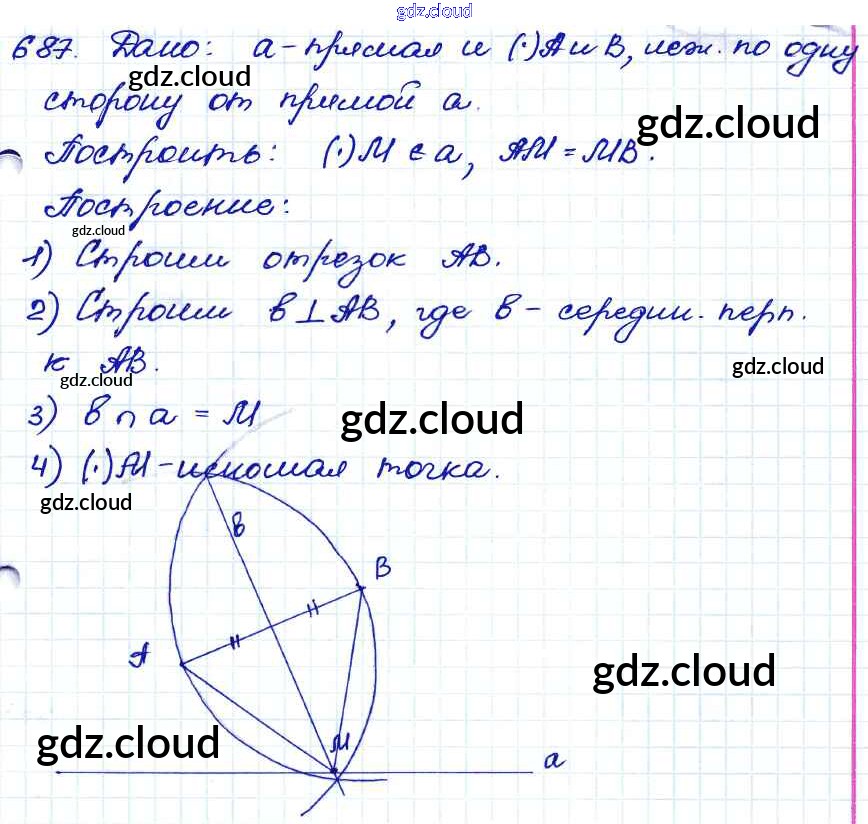 gdz.cloud
687. Дано: a - прямая и (·) A и B, леж. по одну
gdz.cloud
сторону от прямой a.
gdz.cloud
Построить: (·) M ∈ a, AM = MB.
Построение:
gdz.cloud
1) Строим отрезок AB.
2) Строим b ⊥ AB, где b - середин. перп.
к AB.
gdz.cloud
gdz.cloud
3) b ∩ a = M
gdz.cloud
4) (·) M - искомая точка.
gdz.cloud
b
B
A
gdz.cloud
gdz.cloud
M
a